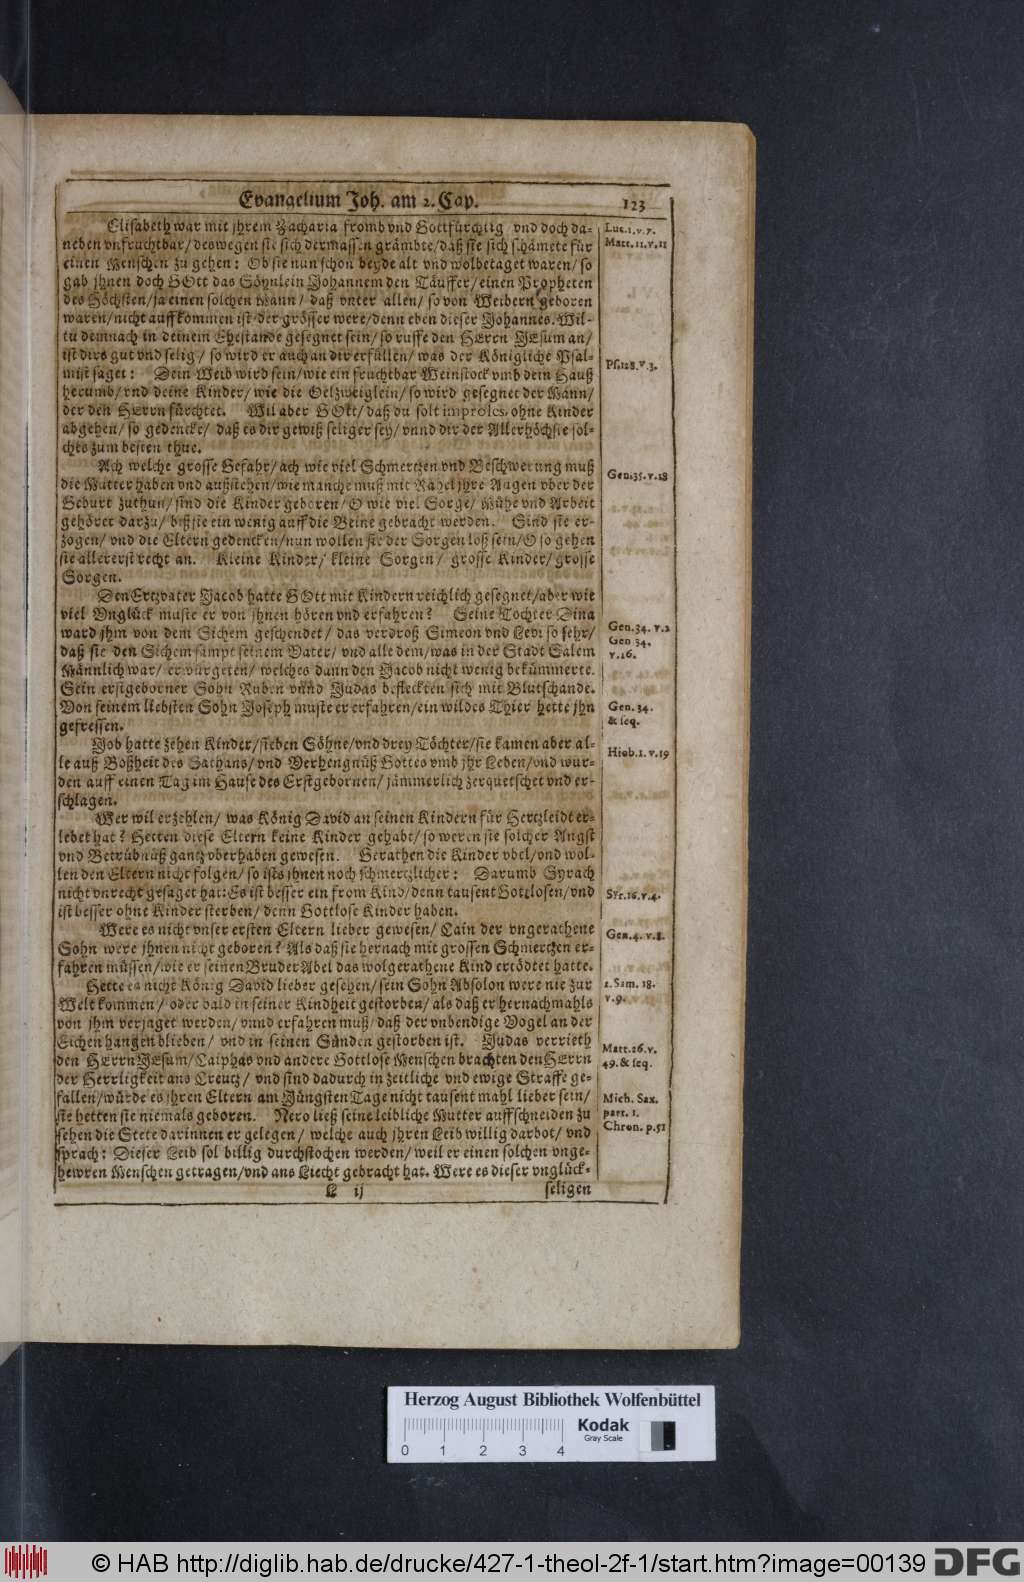 Evangelium Joh. am 2. Cap. 123
Elisabeth war mit jhrem Zacharia fromb vnd Gottfürchtig vnd doch da-
neben vnfruchtbar/ deswegen sie sich dermassen grämbte/ daß sie sich schämete für
einen Menschen zu gehen: Ob sie nun schon beyde alt vnd wolbetaget waren/ so
gab jhnen doch GOtt das Söhnlein Johannem den Täuffer/ einen Propheten
des Höchsten/ ja einen solchen Mann/ daß vnter allen/ so von Weibern geboren
waren/ nicht auffkommen ist der grösser were/ denn eben dieser Johannes. Wil-
tu demnach in deinem Ehestande gesegnet sein/ so ruffe den HErrn JEsum an/
ist dirs gut vnd selig/ so wird er auch an dir erfüllen/ was der Königliche Psal-
mist saget: Dein Weib wird sein/ wie ein fruchtbar Weinstock vmb dein Hauß
herumb/ vnd deine Kinder/ wie die Oelzweiglein/ so wird gesegnet der Mann/
der den HErrn fürchtet. Wil aber GOtt/ daß du solt improles, ohne Kinder
abgehen/ so gedencke/ daß es dir gewiß seliger sey/ vnnd dir der Allerhöchste sol-
ches zum besten thue.
Ach welche grosse Gefahr/ ach wie viel Schmertzen vnd Beschwerung muß
die Mutter haben vnd außstehen/ wie manche muß mit Rahel jhre Augen vber der
Geburt zuthun/ sind die Kinder geboren/ O wie viel Sorge/ Mühe vnd Arbeit
gehöret darzu/ biß sie ein wenig auff die Beine gebracht werden. Sind sie er-
zogen/ vnd die Eltern gedencken/ nun wollen sie der Sorgen loß sein/ O so gehen
sie allererst recht an. Kleine Kinder/ kleine Sorgen/ grosse Kinder/ grosse
Sorgen.
Den Ertzvater Jacob hatte GOtt mit Kindern reichlich gesegnet/ aber wie
viel Vnglück muste er von jhnen hören vnd erfahren? Seine Tochter Dina
ward jhm von dem Sichem geschendet/ das verdroß Simeon vnd Levi so sehr/
daß sie den Sichem sampt seinem Vater/ vnd alle dem/ was in der Stadt Salem
Männlich war/ erwürgeten/ welches dann den Jacob nicht wenig bekümmerte.
Sein erstgeborner Sohn Ruben vnnd Judas befleckten sich mit Blutschande.
Von seinem liebsten Sohn Joseph muste er erfahren/ ein wildes Thier hette jhn
gefressen.
Job hatte zehen Kinder/ sieben Söhne/ vnd drey Töchter/ sie kamen aber al-
le auß Boßheit des Sathans/ vnd Verhengnüß Gottes vmb jhr Leben/ vnd wur-
den auff einen Tag im Hause des Erstgebornen/ jämmerlich zerquetschet vnd er-
schlagen.
Wer wil erzehlen/ was König David an seinen Kindern für Hertzleidt er-
lebet hat? Hetten diese Eltern keine Kinder gehabt/ so weren sie solcher Angst
vnd Betrübnüß gantz vberhaben gewesen. Gerathen die Kinder vbel/ vnd wol-
len den Eltern nicht folgen/ so ists jhnen noch schmertzlicher: Darumb Syrach
nicht vnrecht gesaget hat: Es ist besser ein from Kind/ denn tausent Gottlosen/ vnd
ist besser ohne Kinder sterben/ denn Gottlose Kinder haben.
Were es nicht vnser ersten Eltern lieber gewesen/ Cain der vngerathene
Sohn were jhnen nicht geboren? Als daß sie hernach mit grossen Schmertzen er-
fahren müssen/ wie er seinen Bruder Abel das wolgerathene Kind ertödtet hatte.
Hette es nicht König David lieber gesehen/ sein Sohn Absolon were nie zur
Welt kommen/ oder bald in seiner Kindheit gestorben/ als daß er hernachmahls
von jhm verjaget werden/ vnnd erfahren muß/ daß der vnbendige Vogel an der
Eichen hangen blieben/ vnd in seinen Sünden gestorben ist. Judas verrieth
den HErrn JEsum/ Caiphas vnd andere Gottlose Menschen brachten den HErrn
der Herrligkeit ans Creutz/ vnd sind dadurch in zeitliche vnd ewige Straffe ge-
fallen/ würde es jhren Eltern am Jüngsten Tage nicht tausent mahl lieber sein/
sie hetten sie niemals geboren. Nero ließ seine leibliche Mutter auffschneiden zu
sehen die Stete darinnen er gelegen/ welche auch jhren Leib willig darbot/ vnd
sprach: Dieser Leib sol billig durchstochen werden/ weil er einen solchen vnge-
hewren Menschen getragen/ vnd ans Liecht gebracht hat. Were es dieser vnglück-
L ij seligen
Luc. 1. v. 7.
Matt. 11. v. 11
Ps. 128. v. 3.
Gen. 35. v. 18
Gen. 34. v. 2
Gen 34.
v. 26.
Gen. 34.
& seq.
Hiob. 1. v. 19
Syr. 16. v. 4.
Gen. 4. v. 8.
2. Sam. 18.
v. 9.
Matt. 26. v.
49. & seq.
Mich. Sax.
part. 1.
Chron. p. 51
Herzog August Bibliothek Wolfenbüttel
0 1 2 3 4
Kodak
Gray Scale
© HAB http://diglib.hab.de/drucke/427-1-theol-2f-1/start.htm?image=00139
DFG